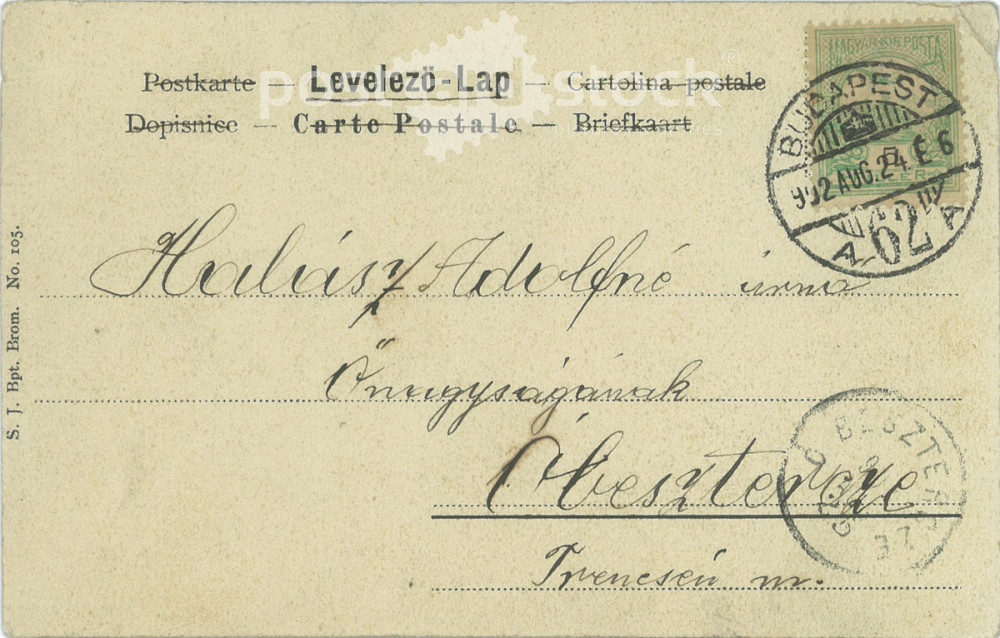 Postkarte — Levelező-Lap — Cartolina postale
Dopisnice — Carte Postale — Briefkaart
MAGYAR KIR. POSTA
BUDAPEST
902 AUG. 24. E 6
A 62 A
Halász Adolfné úrnő
Őnagyságának
Óbesztercze
Trencsén m.
Ó BESZTERCZE
S. J. Bpt. Brom. No. 105.